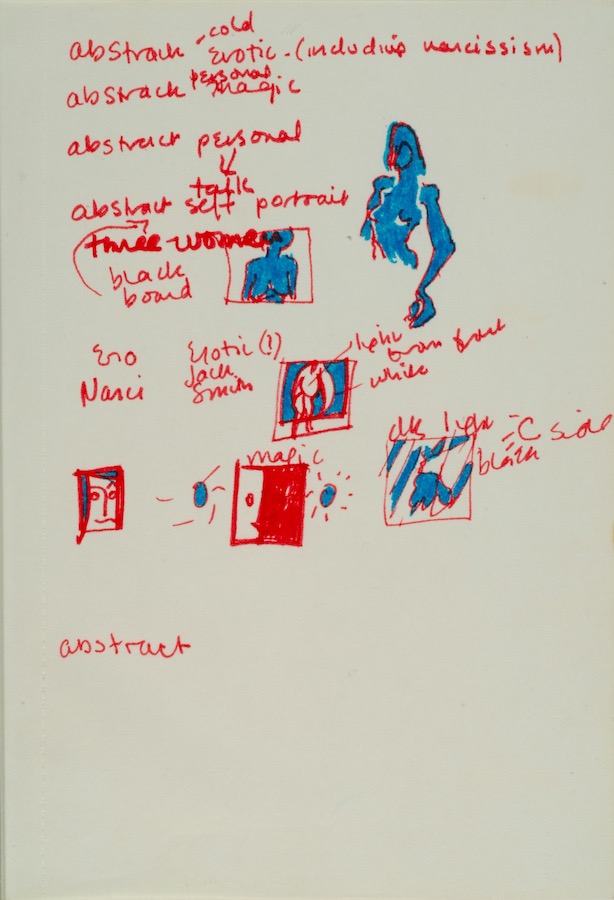 abstrack - cold
Erotic - (including narcissism)
abstrack personal
magic
abstract personal
talk
abstract self portrait
three women
black
board
Ero
Narci
Erotic (?)
Jack
Smith
light
from front
white
magic
light = C side
black
abstract